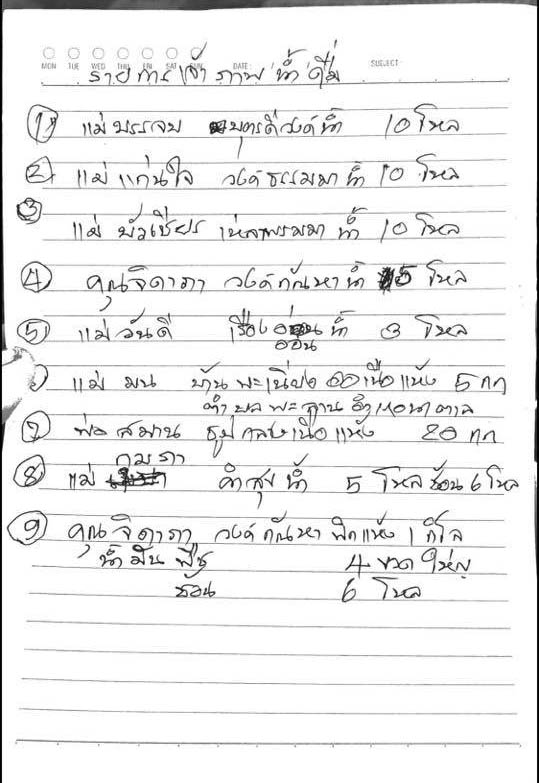 MON TUE WED THU FRI SAT SUN DATE: SUBJECT:
รายการเจ้าภาพน้ำดื่ม
1 แม่บรรจบ บุตรดีวงค์น้ำ 10 โหล
2 แม่แก่นใจ วงค์ธรรมมาน้ำ 10 โหล
3
แม่ บัวเชียร เหลาพรมมา น้ำ 10 โหล
4 คุณจิดาภา วงค์กัณหาน้ำ 5 โหล
5 แม่วันดี เรืองอ่อน น้ำ 3 โหล
อ่อน
แม่ มน บ้านพะเนียง เนื้อแห้ง 5 กก
ตำบล อำเภอนาตาล
7 พ่อ สมาน ธูปกลางเนื้อแห้ง 20 กก
กุมภา
8 แม่ คำสุข น้ำ 5 โหลช้อน 6 โหล
9 คุณ จิดาภา วงค์กัณหา พริกแห้ง 1 กิโล
น้ำมันพืช 4 ขวดใหญ่
ช้อน 6 โหล